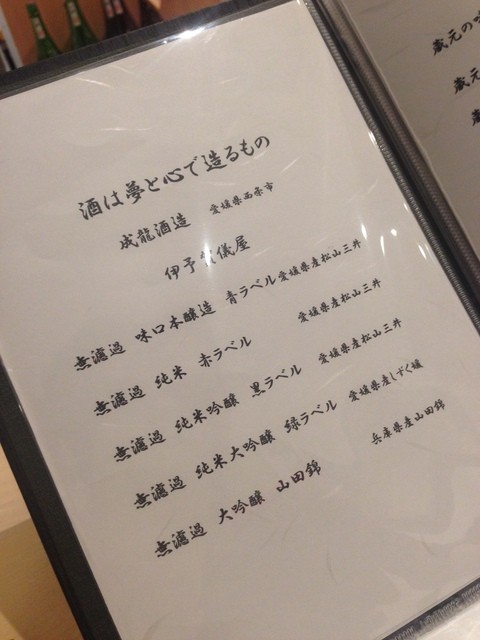 酒は夢と心で造るもの
成龍酒造 愛媛県西条市
伊予賀儀屋
無濾過 味口本醸造 青ラベル 愛媛県産松山三井
無濾過 純米 赤ラベル 愛媛県産松山三井
無濾過 純米吟醸 黒ラベル 愛媛県産松山三井
無濾過 純米大吟醸 緑ラベル 愛媛県産しずく媛
無濾過 大吟醸 山田錦 兵庫県産山田錦
蔵元の
蔵元